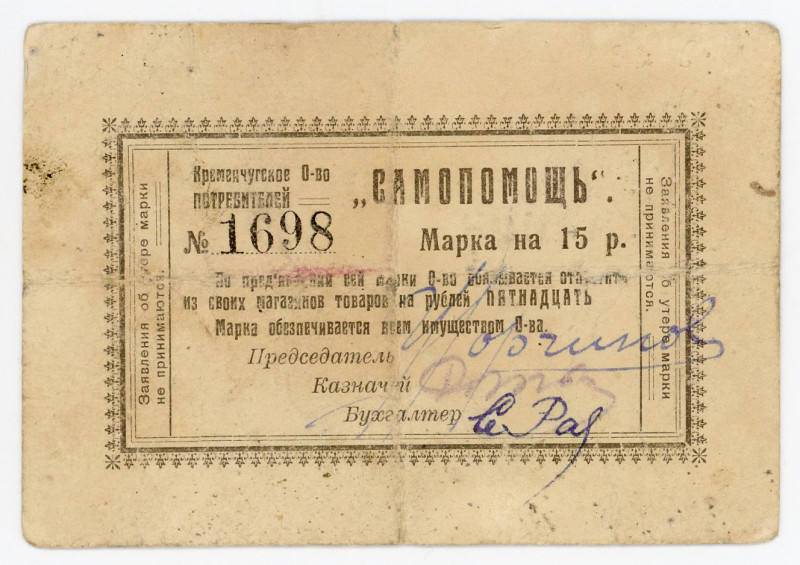 Заявления об утере марки
не принимаются.
Кременчугское О-во
ПОТРЕБИТЕЛЕЙ
„САМОПОМОЩЬ".
№ 1698
Марка на 15 р.
По пред'явлении сей марки О-во обязывается отпустить
из своих магазинов товаров на рублей ПЯТНАДЦАТЬ
Марка обезпечивается всем имуществом О-ва.
Председатель
Казначей
Бухгалтер
Заявления об утере марки
не принимаются.